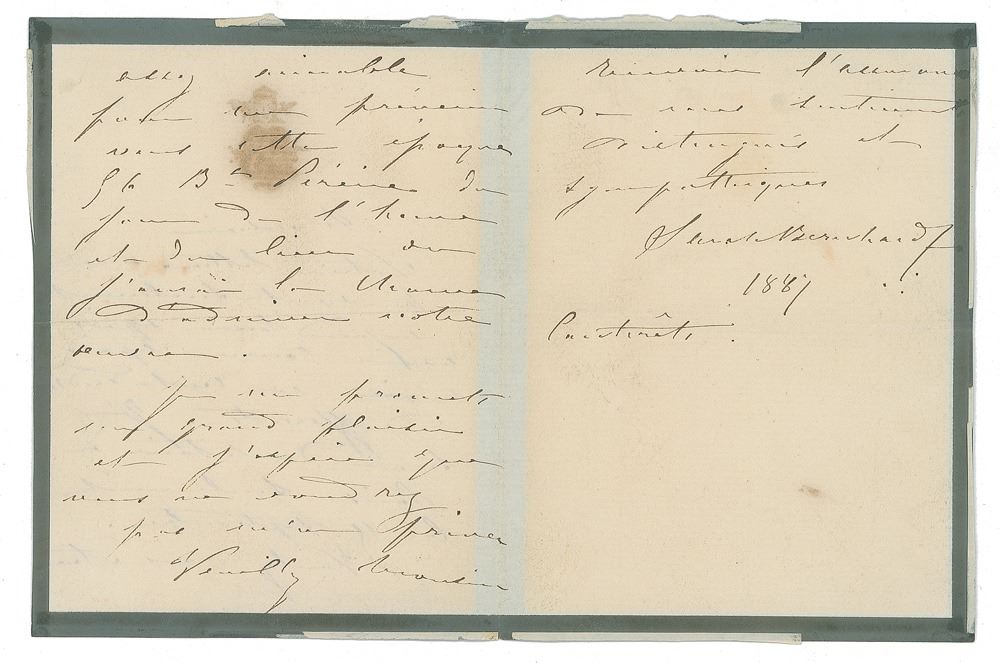 assez aimable
pour me prévenir
vers cette époque
56 Bd Péreire du
jour de l'heure
et du lieu ou
j'aurai la chance
d'admirer votre
œuvre.
Je me promets
un grand plaisir
et j'espère que
vous ne voudrez
pas m'en priver
Veuillez Monsieur
recevoir l'assurance
de mes sentiments
distingués et
sympathiques
Sarah Bernhardt
1887
Cauterets.